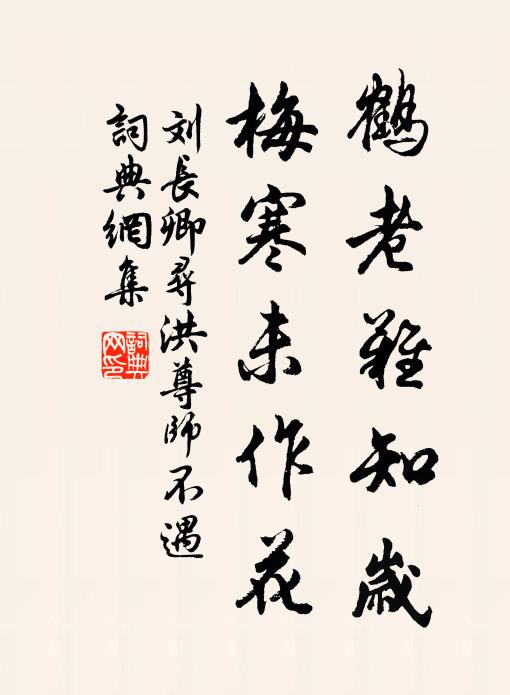 鶴老難知歲
梅寒未作花
刘長卿尋洪尊師不遇
詞典網集
詞典網印